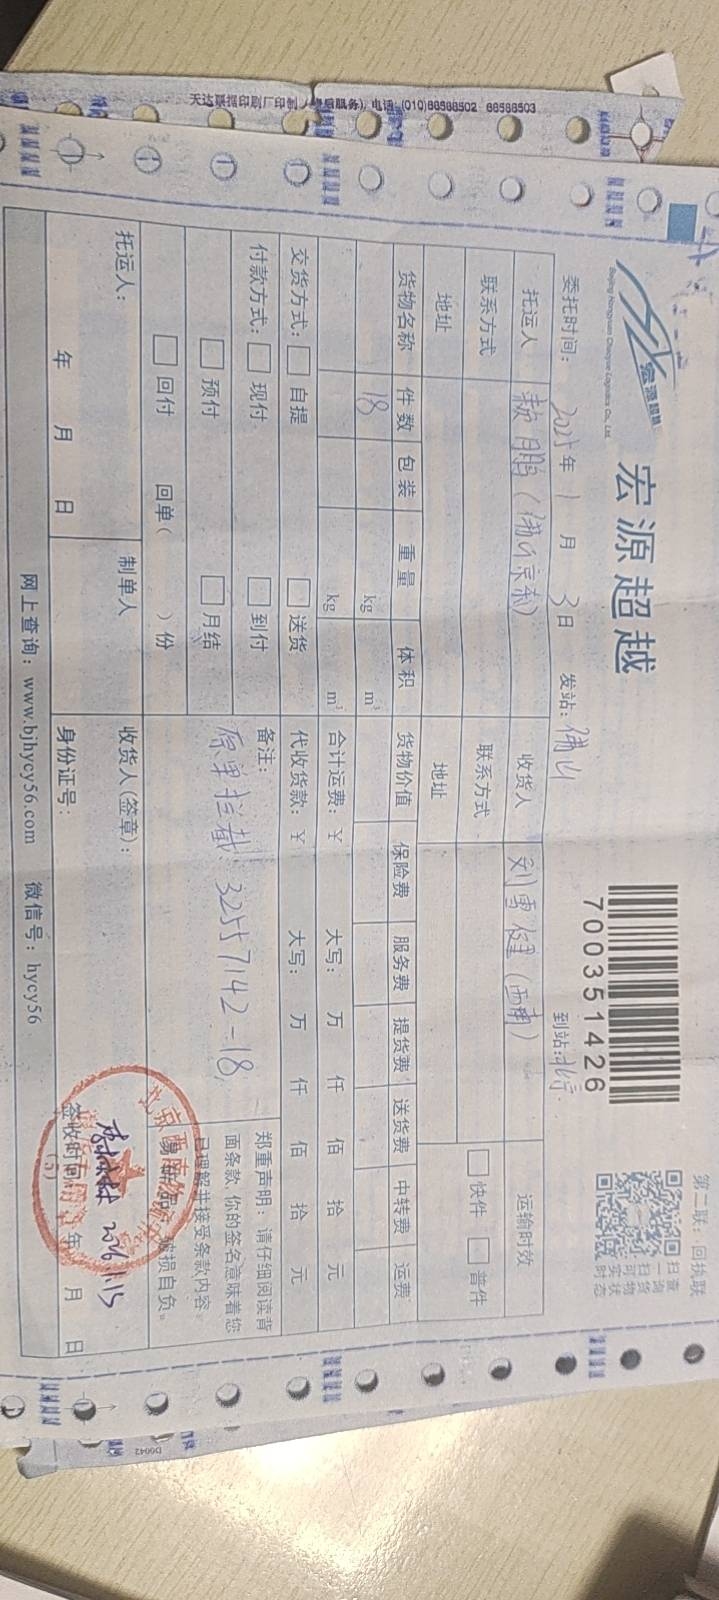 天达联福印刷厂印制 电话:(010)88588502 88588503
宏源超越
Beijing Hongyuan Chaoyue Logistics Co., Ltd.
宏源超越
700351426
第二联：回执联
扫一扫可实时
查询货物状态
委托时间： 年 1 月 3 日 发站：佛山 到站：北京
托运人 收货人 运输时效
联系方式 联系方式 快件 普件
地址 地址
货物名称 件数 包装 重量 体积 货物价值 保险费 服务费 提货费 送货费 中转费 运费
18 kg m³
kg m³ 合计运费：￥ 大写： 万 仟 佰 拾 元
交货方式： 自提 送货 代收货款：￥ 大写： 万 仟 佰 拾 元
付款方式： 现付 到付 备注：
预付 月结 原单拦截 32557142-18
回付 回单（ ）份
郑重声明：请仔细阅读背
面条款,你的签名意味着您
已理解并接受条款内容。
破损自负。
托运人： 制单人 收货人(签章)：
年 月 日 身份证号： 签收时间 年 月 日
(5)
网上查询：www.bjhycy56.com 微信号：hycy56